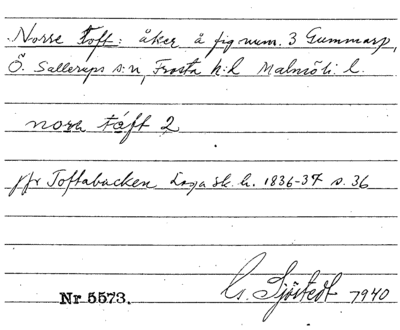 Norre Toft: åker å fig num. 3 Gummarp,
Ö. Sallerups s:n, Frosta h:d Malmöh. l.
nora tåft 2
jfr Toftabacken Laga sk. h. 1836-37 s. 36
Nr 5573. G. Sjöstedt 1940